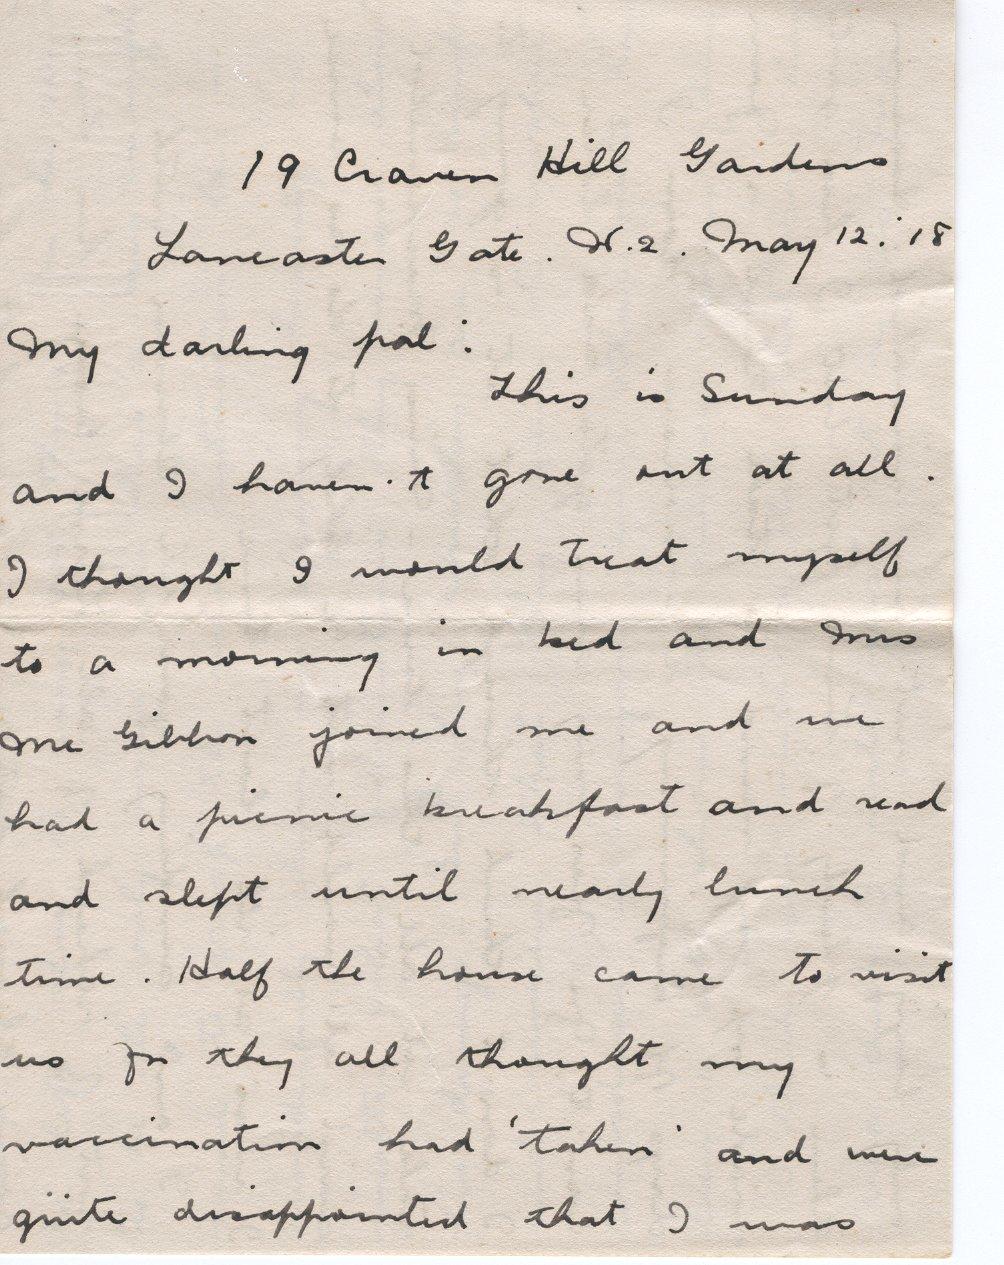 19 Craven Hill Gardens
Lancaster Gate. W.2. May 12. '18
My darling pal:
This is Sunday
and I haven't gone out at all.
I thought I would treat myself
to a morning in bed and Mrs
Mc Gibbon joined me and we
had a picnic breakfast and read
and slept until nearly lunch
time. Half the house came to visit
us for they all thought my
vaccination had 'taken' and were
quite disappointed that I was